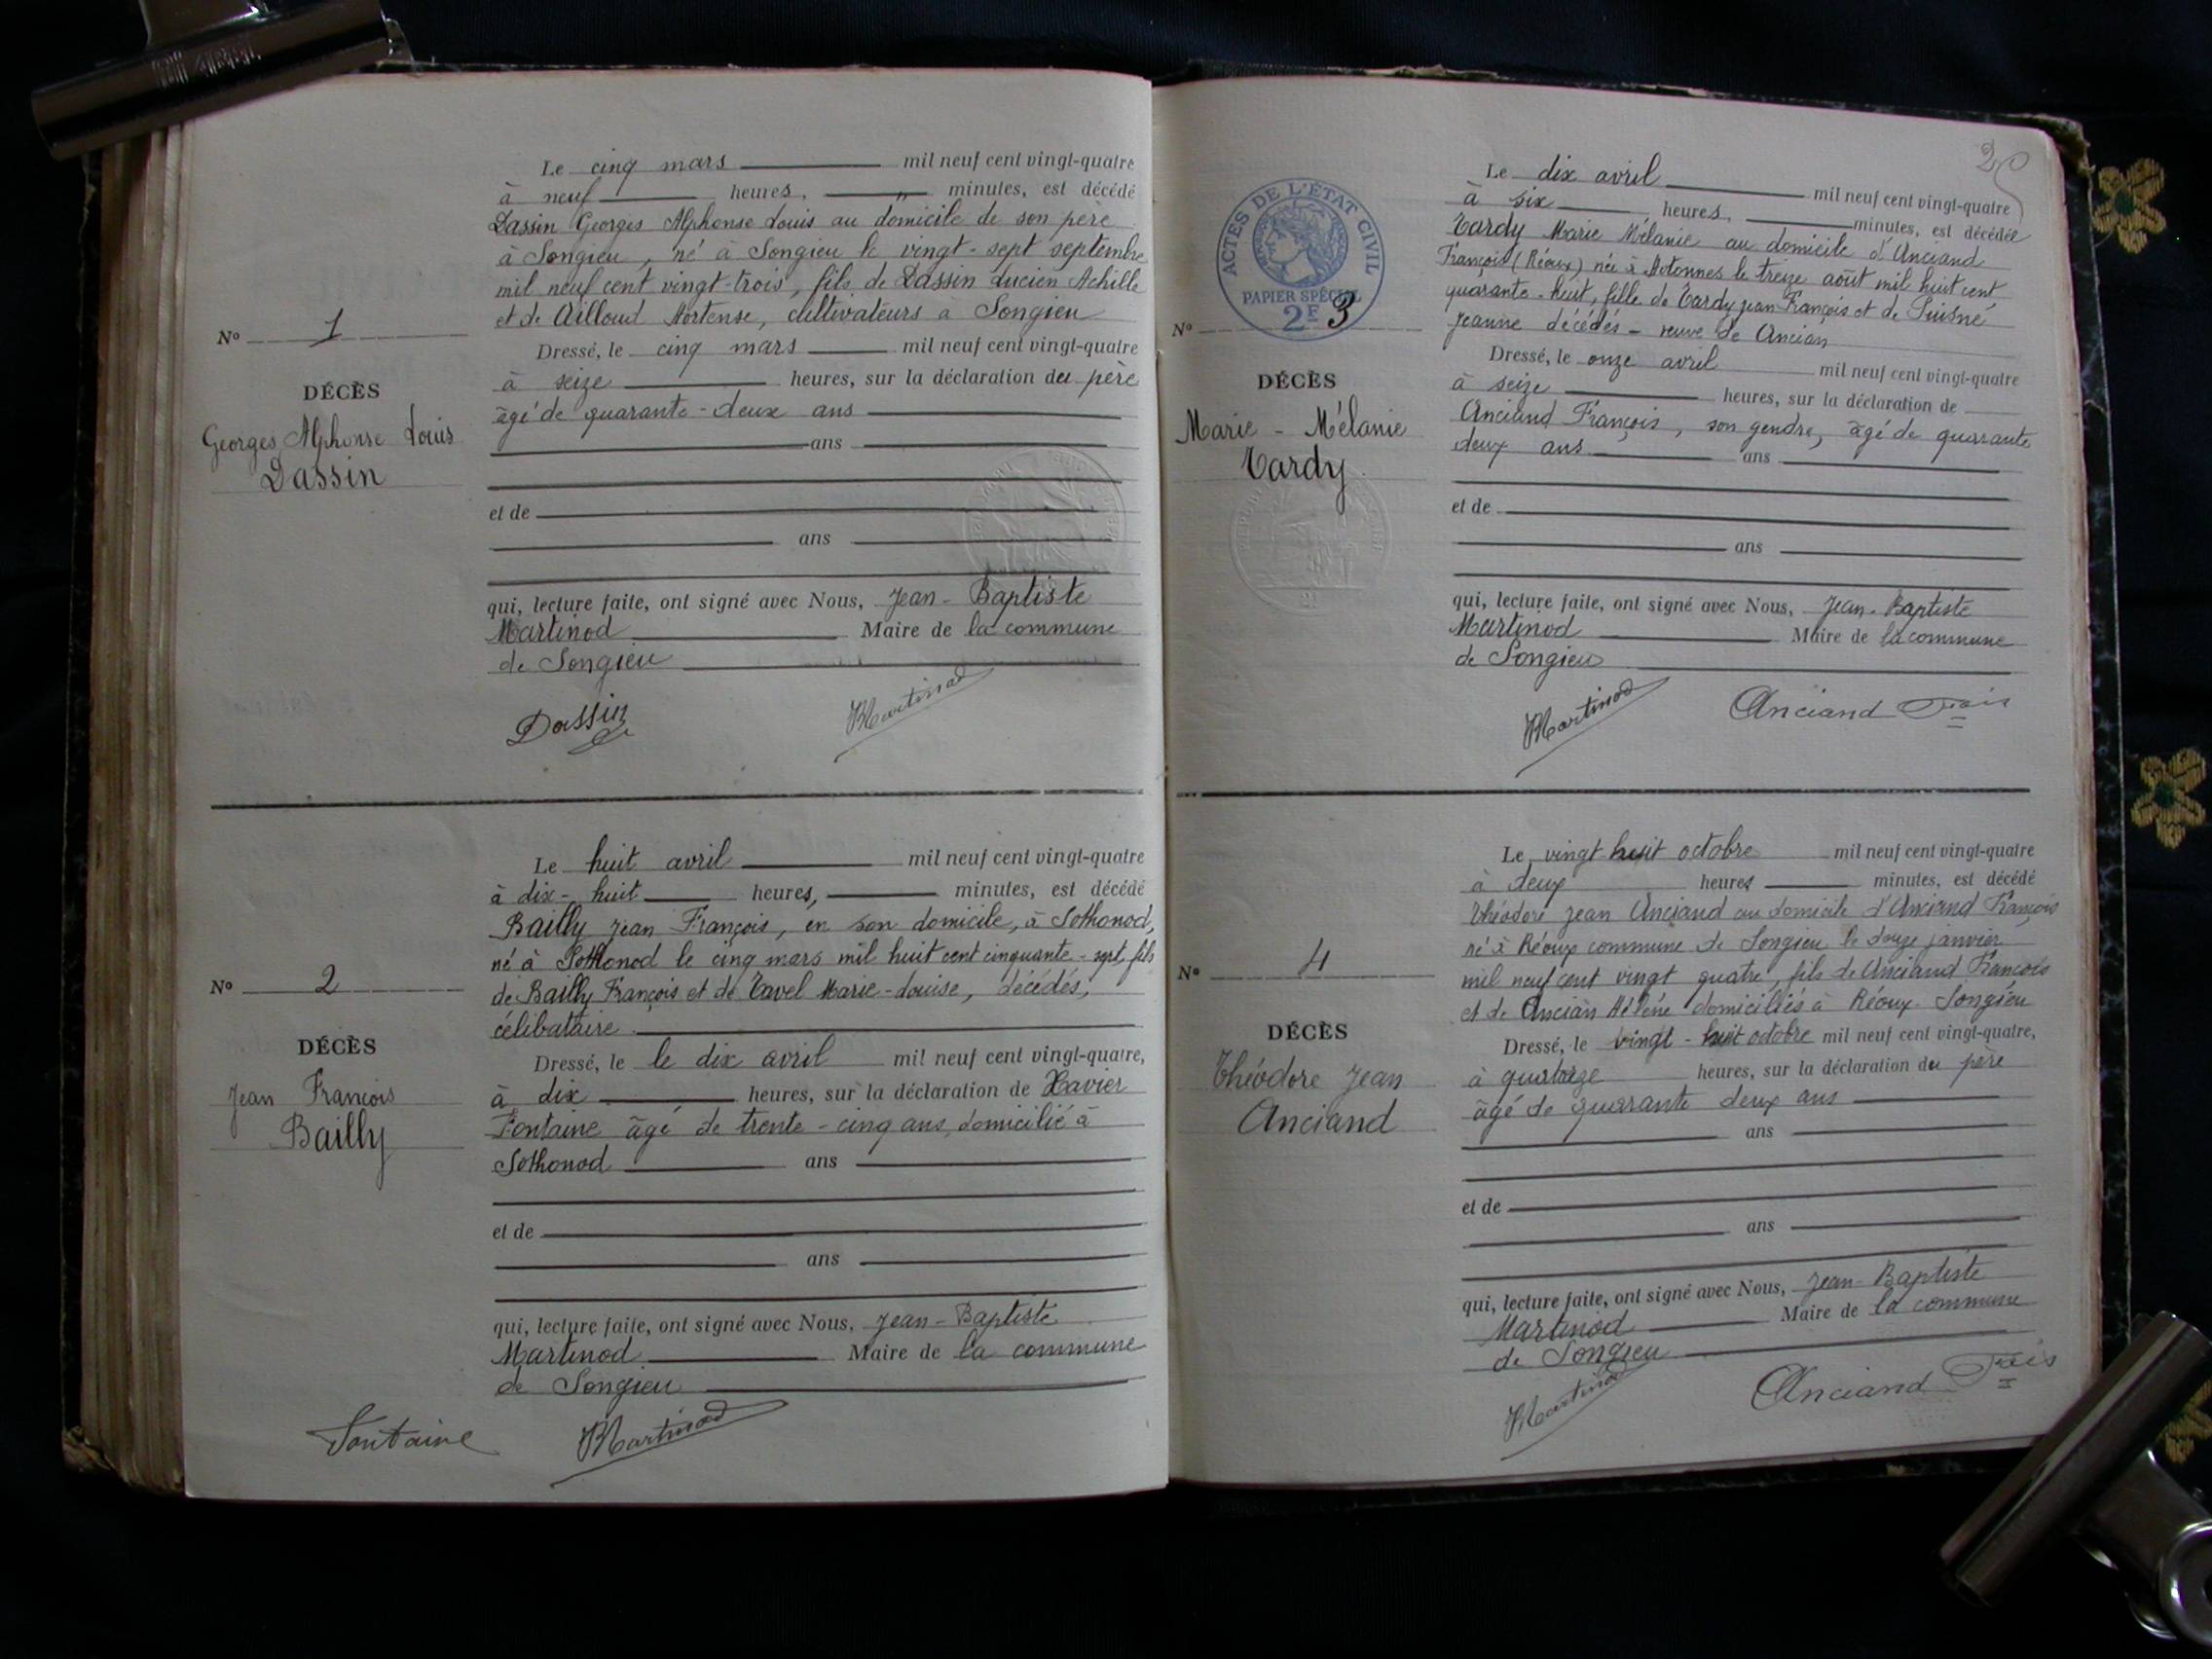 Le cinq mars mil neuf cent vingt-quatre
à neuf heures, " minutes, est décédé
Dassin Georges Alphonse Louis au domicile de son père
à Songieu, né à Songieu le vingt-sept septembre
mil neuf cent vingt-trois, fils de Dassin Lucien Achille
et de Ailloud Hortense, cultivateurs à Songieu
No 1
Dressé, le cinq mars mil neuf cent vingt-quatre
à seize heures, sur la déclaration du père
DÉCÈS
âgé de quarante-deux ans
Georges Alphonse Louis
ans
Dassin
et de
ans
qui, lecture faite, ont signé avec Nous, Jean-Baptiste
Martinod Maire de la commune
de Songieu
Dassin Martinod
Le huit avril mil neuf cent vingt-quatre
à dix-huit heures, minutes, est décédé
Bailly Jean François, en son domicile, à Sothonod,
né à Sothonod le cinq mars mil huit cent cinquante-sept, fils
No 2
de Bailly François et de Tavel Marie-Louise, décédés,
célibataire
DÉCÈS
Dressé, le le dix avril mil neuf cent vingt-quatre,
Jean François
à dix heures, sur la déclaration de Xavier
Bailly
Fontaine âgé de trente-cinq ans, domicilié à
Sothonod ans
et de
ans
qui, lecture faite, ont signé avec Nous, Jean-Baptiste
Martinod Maire de la commune
de Songieu
Fontaine Martinod
2
Le dix avril mil neuf cent vingt-quatre
à six heures, minutes, est décédée
Tardy Marie Mélanie au domicile d'Anciand
François (Réoux) née à Hotonnes le treize août mil huit cent
quarante-huit, fille de Tardy Jean François et de Puisné
Jeanne décédés - veuve de Ancian
ACTES DE L'ÉTAT CIVIL
PAPIER SPÉCIAL
2F
No 3
Dressé, le onze avril mil neuf cent vingt-quatre
DÉCÈS
à seize heures, sur la déclaration de
Marie-Mélanie
Anciand François, son gendre, âgé de quarante
Tardy
deux ans ans
et de
ans
qui, lecture faite, ont signé avec Nous, Jean-Baptiste
Martinod Maire de la commune
de Songieu
Martinod Anciand Fçois
Le vingt-huit octobre mil neuf cent vingt-quatre
à deux heures minutes, est décédé
Théodore Jean Anciand au domicile d'Anciand François
né à Réoux commune de Songieu le douze janvier
No 4
mil neuf cent vingt quatre, fils de Anciand François
et de Ancian Hélène domiciliés à Réoux-Songieu
DÉCÈS
Dressé, le vingt-huit octobre mil neuf cent vingt-quatre,
Théodore Jean
à quatorze heures, sur la déclaration du père
Anciand
âgé de quarante deux ans
ans
et de
ans
qui, lecture faite, ont signé avec Nous, Jean-Baptiste
Martinod Maire de la commune
de Songieu
Martinod Anciand Fçois